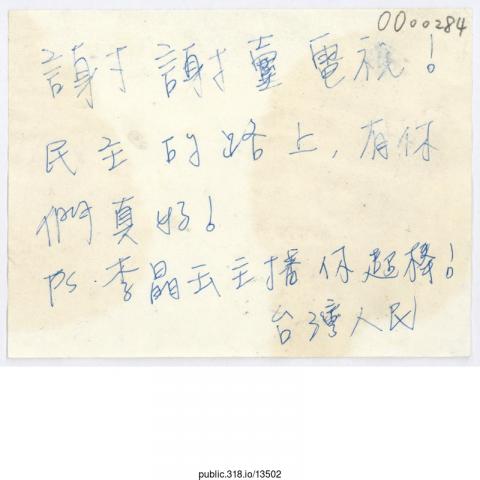 0000284
謝謝壹電視！
民主的路上，有你
們真好！
PS.李晶玉主播你超棒！
台灣人民
public.318.io/13502